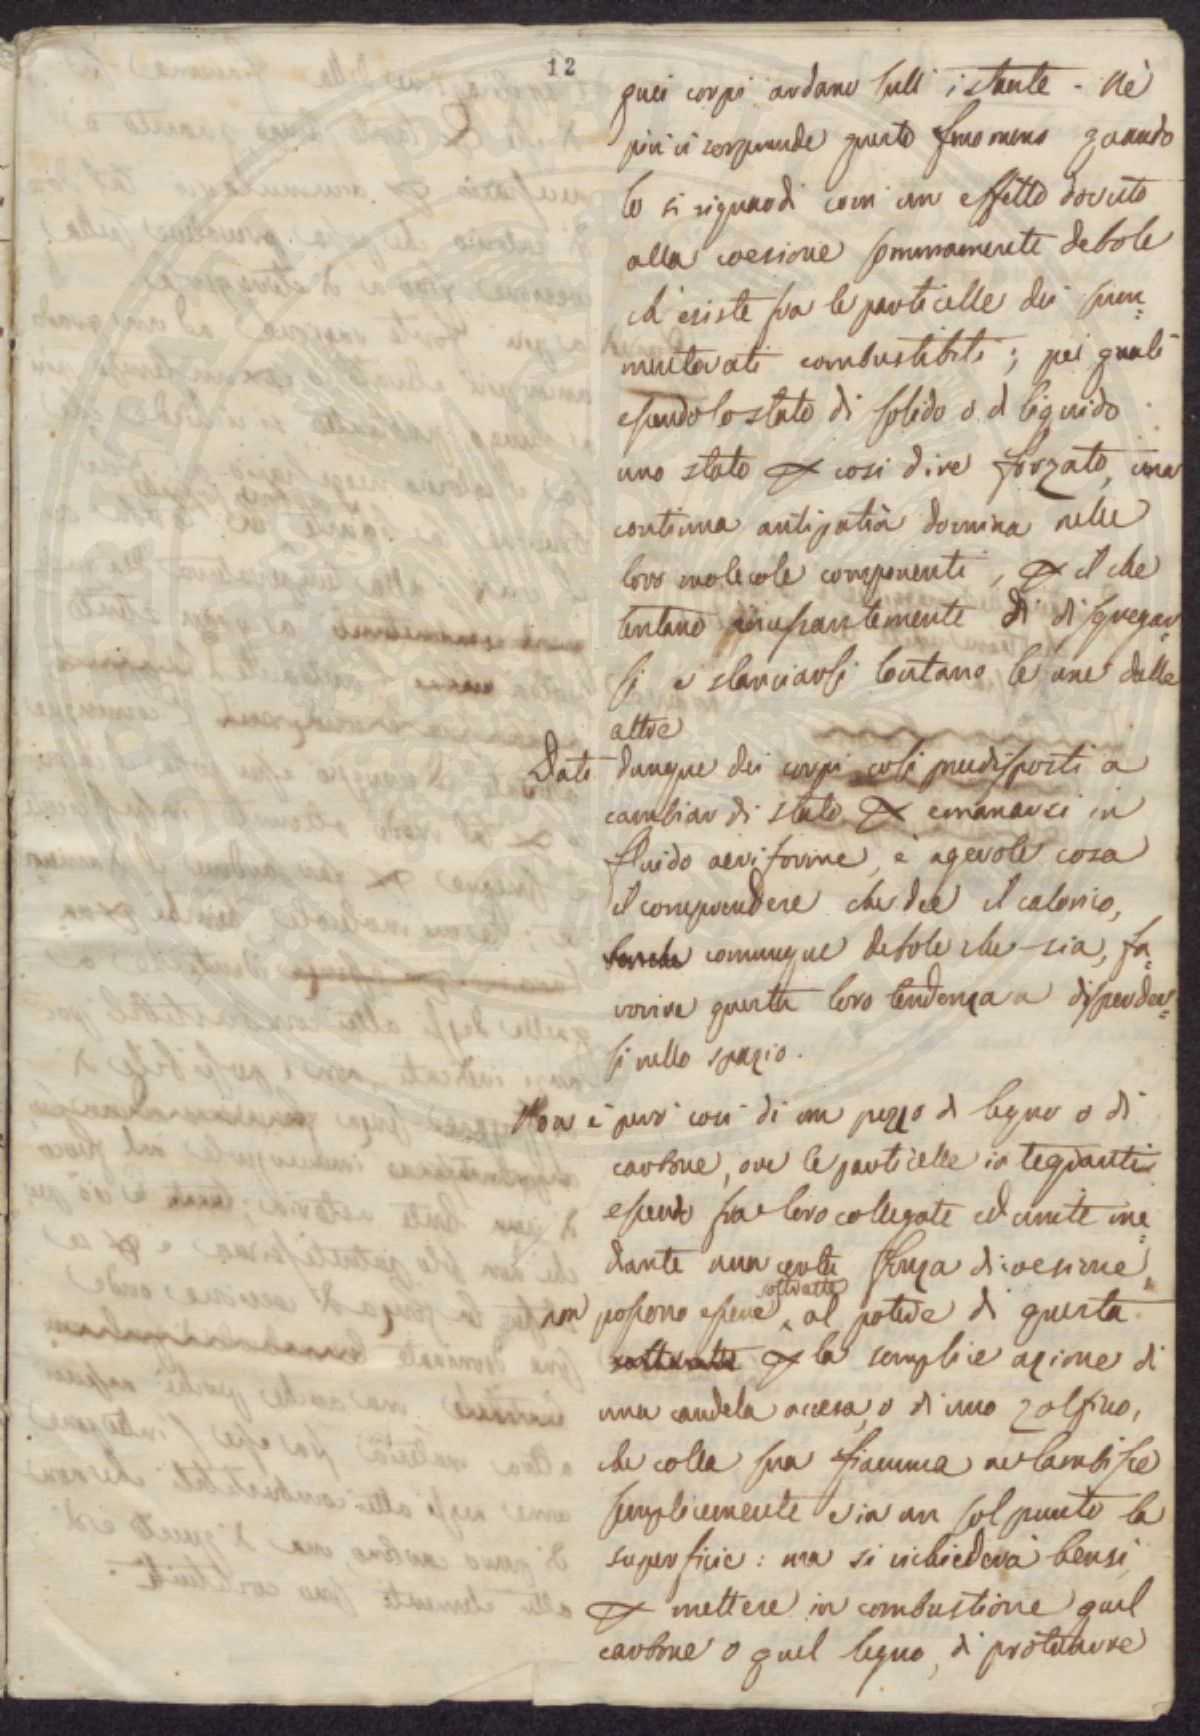 12
quei corpi ardano sull'istante - Nè
più ci sorprende questo fenomeno quando
lo si riguardi com'un effetto dovuto
alla coesione sommamente debole
ch'esiste fra le particelle dei sum=
mentovati combustibili; pei quali
essendo lo stato di solido o di liquido
uno stato per così dire forzato, una
continua antipatia domina nelle
loro molecole componenti, per il che
tentano incessantemente di disgregar=
si e slanciarsi lontano le une dalle
altre
Dati dunque dei corpi così predisposti a
cambiar di stato per emanarsi in
fluido aeriforme, è agevole cosa
il comprendere che dee il calorico,
comunque debole che sia, fa=
vorire questa loro tendenza a disperder=
si nello spazio.
Non è però così di un pezzo di legno o di
carbone, ove le particelle integranti
essendo fra loro collegate ed unite me=
diante una certa forza di coesione,
sottratte
non possono essere al potere di questa
sottratte per la semplice azione di
una candela accesa, o di uno zolfino,
che colla sua fiamma ne lambisce
semplicemente e in un sol punto la
superficie: ma si richiederà bensì
per mettere in combustione quel
carbone o quel legno, di protrarre